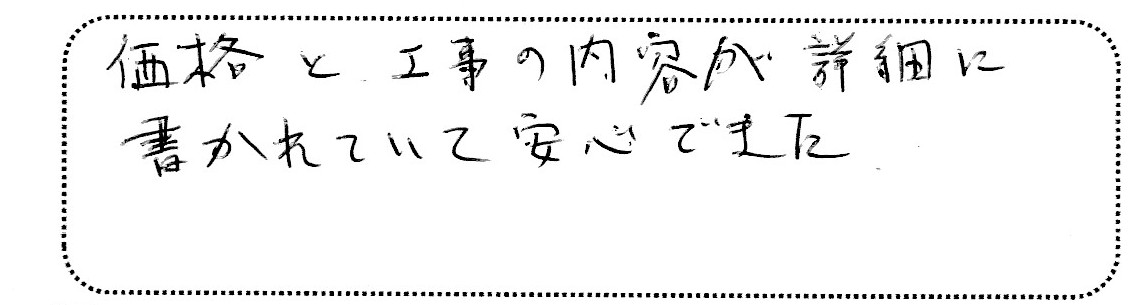 価格と工事の内容が詳細に
書かれていて安心できた